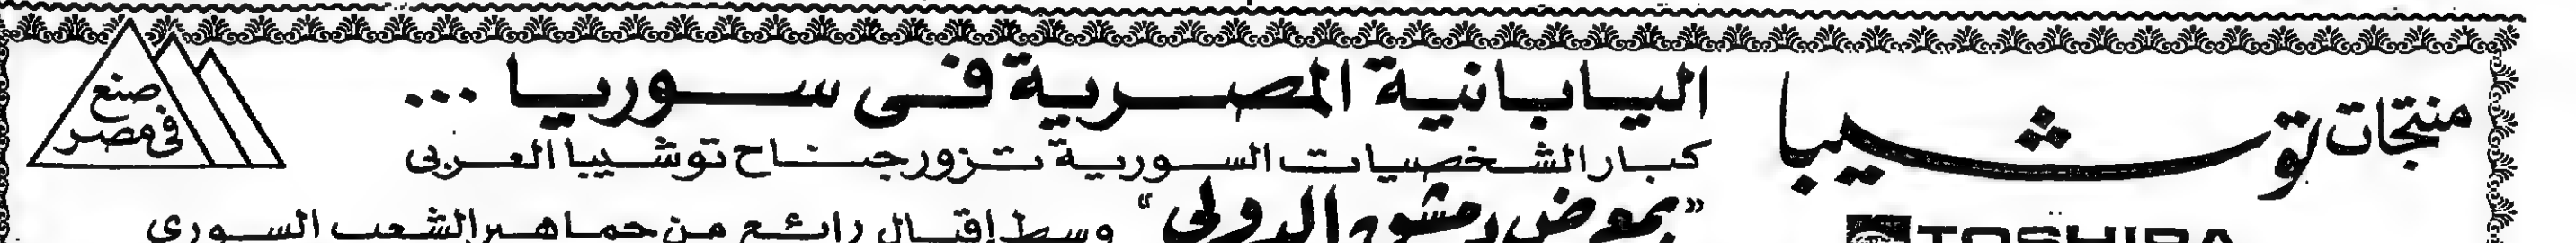 منتجات توشيبا
اليابانية المصرية فى سوريا ...
كبار الشخصيات السورية تزور جناح توشيبا العربى
"بمعرض دمشق الدولى" وسط إقبال رائع من جماهير الشعب السورى
TOSHIBA
صنع
فى مصر